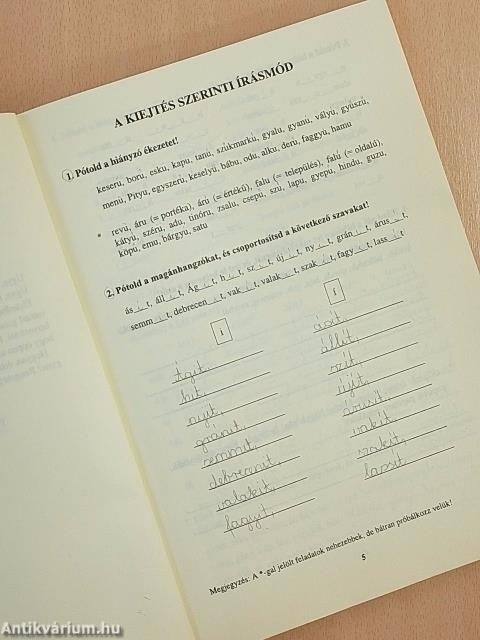 A KIEJTÉS SZERINTI ÍRÁSMÓD
1. Pótold a hiányzó ékezetet!
keseru, boru, esku, kapu, tanu, szukmarku, gyalu, gyanu, vályu, gyuszu,
menu, Piryu, egyszeru, keselyu, bábu, odu, alku, deru, faggyu, hamu
* revu, áru (= portéka), áru (= értékű), falu (= település), falu (= oldalú),
kátyu, széru, adu, tinóru, zsalu, csepu, szu, lapu, gyepu, hindu, guzu,
kopu, emu, bárgyu, satu
2. Pótold a magánhangzókat, és csoportosítsd a következő szavakat!
ás í t, áll í t, Ág i t, h i t, sz í t, új í t, ny i t, grán i t, árus í t,
semm i t, debrecen i t, vak í t, valak i t, szak í t, fagy i t, lass í t
i
í
Ágit,
ásít
hit,
állít,
nyit,
szít,
gránit,
újít,
semmit,
árusít,
debrecenit,
vakít
valakit,
szakít,
fagyit,
lassít
Megjegyzés: A *-gal jelölt feladatok nehezebbek, de bátran próbálkozz velük!
5
Antikvárium.hu